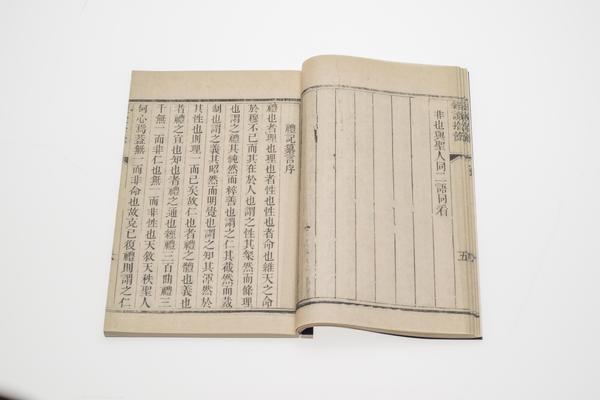 五
非也與聖人同二語同看
禮記纂言序
禮也者理也理也者性也性也者命也維天之命
於穆不已而其在於人也謂之性其粲然而條理
也謂之禮其純然而粹善也謂之仁其截然而裁
制也謂之義其昭然而明覺也謂之知其渾然於
其性也則理一而已矣故仁也者禮之體也義也
者禮之宜也知也者禮之通也經禮三百曲禮三
千無一而非仁也無一而非性也天敘天秩聖人
何心焉蓋無一而非命也故克己復禮則謂之仁